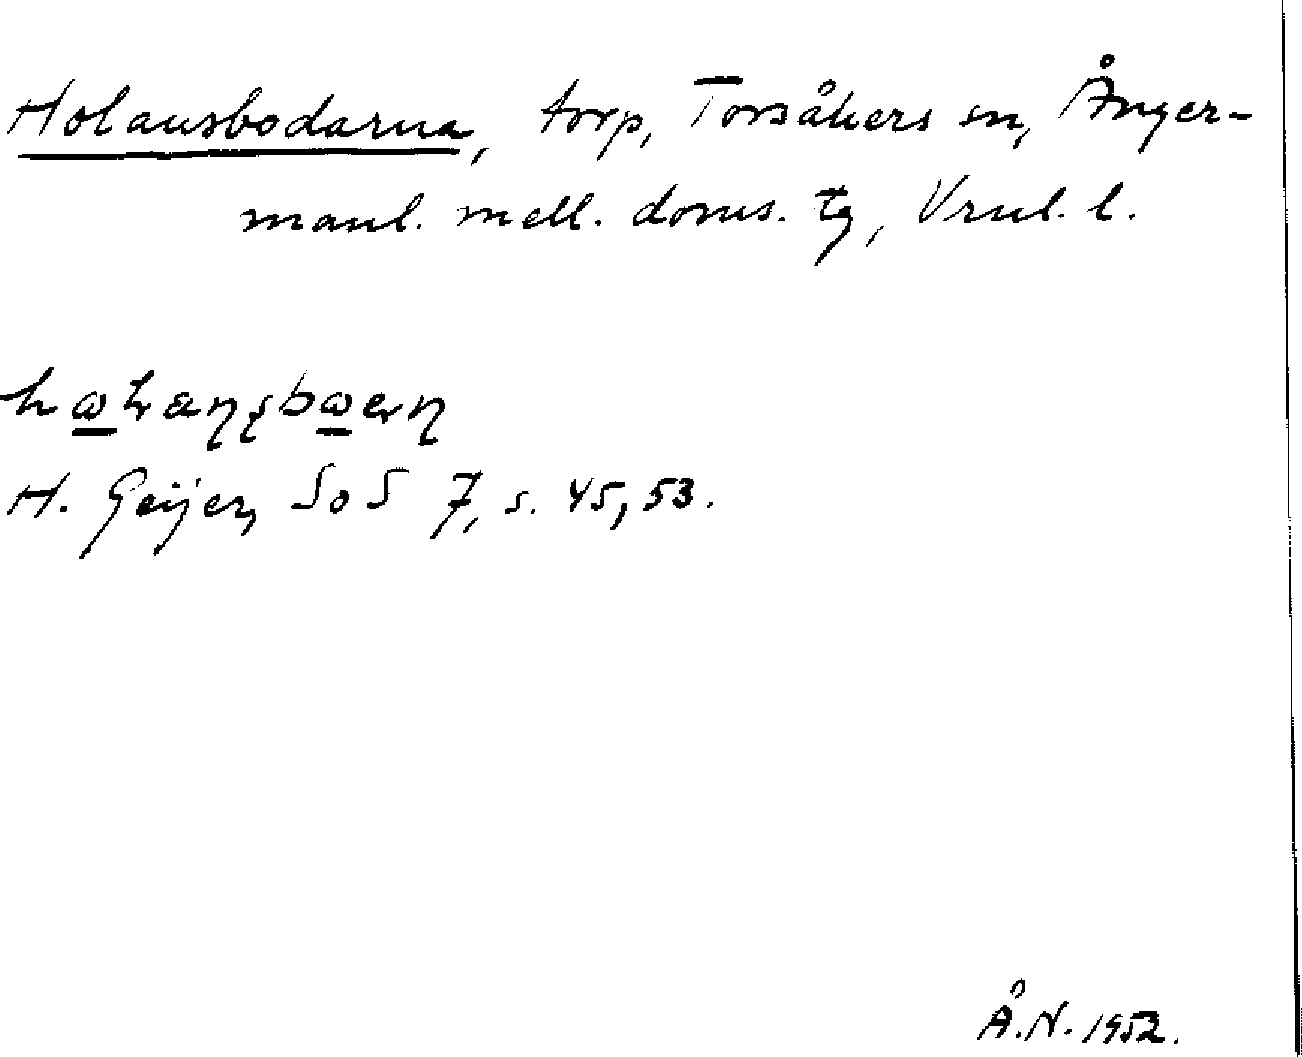 Holansbodarna, torp, Torsåkers sn, Ånger-
manl. mell. doms. tg, Vrnl. l.
H. Geijer, SoS 7, s. 45, 53.
Å.N. 1952.